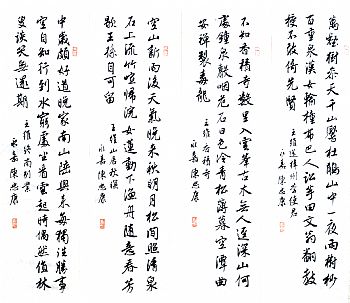 萬壑樹參天千山響杜鵑山中一夜雨樹杪
百重泉漢女輸橦布巴人訟芋田文翁翻教
授不敢倚先賢
王維送梓州李使君
永嘉陳忠康
不知香積寺數里入雲峰古木無人逕深山何
處鐘泉聲咽危石日色冷青松薄暮空潭曲
安禪製毒龍
王維過香積寺
永嘉陳忠康
空山新雨後天氣晚來秋明月松間照清泉
石上流竹喧歸浣女蓮動下漁舟隨意春芳
歇王孫自可留
王維山居秋暝
永嘉陳忠康
中歲頗好道晚家南山陲興來每獨往勝事
空自知行到水窮處坐看雲起時偶然值林
叟談笑無還期
王維終南別業
永嘉陳忠康